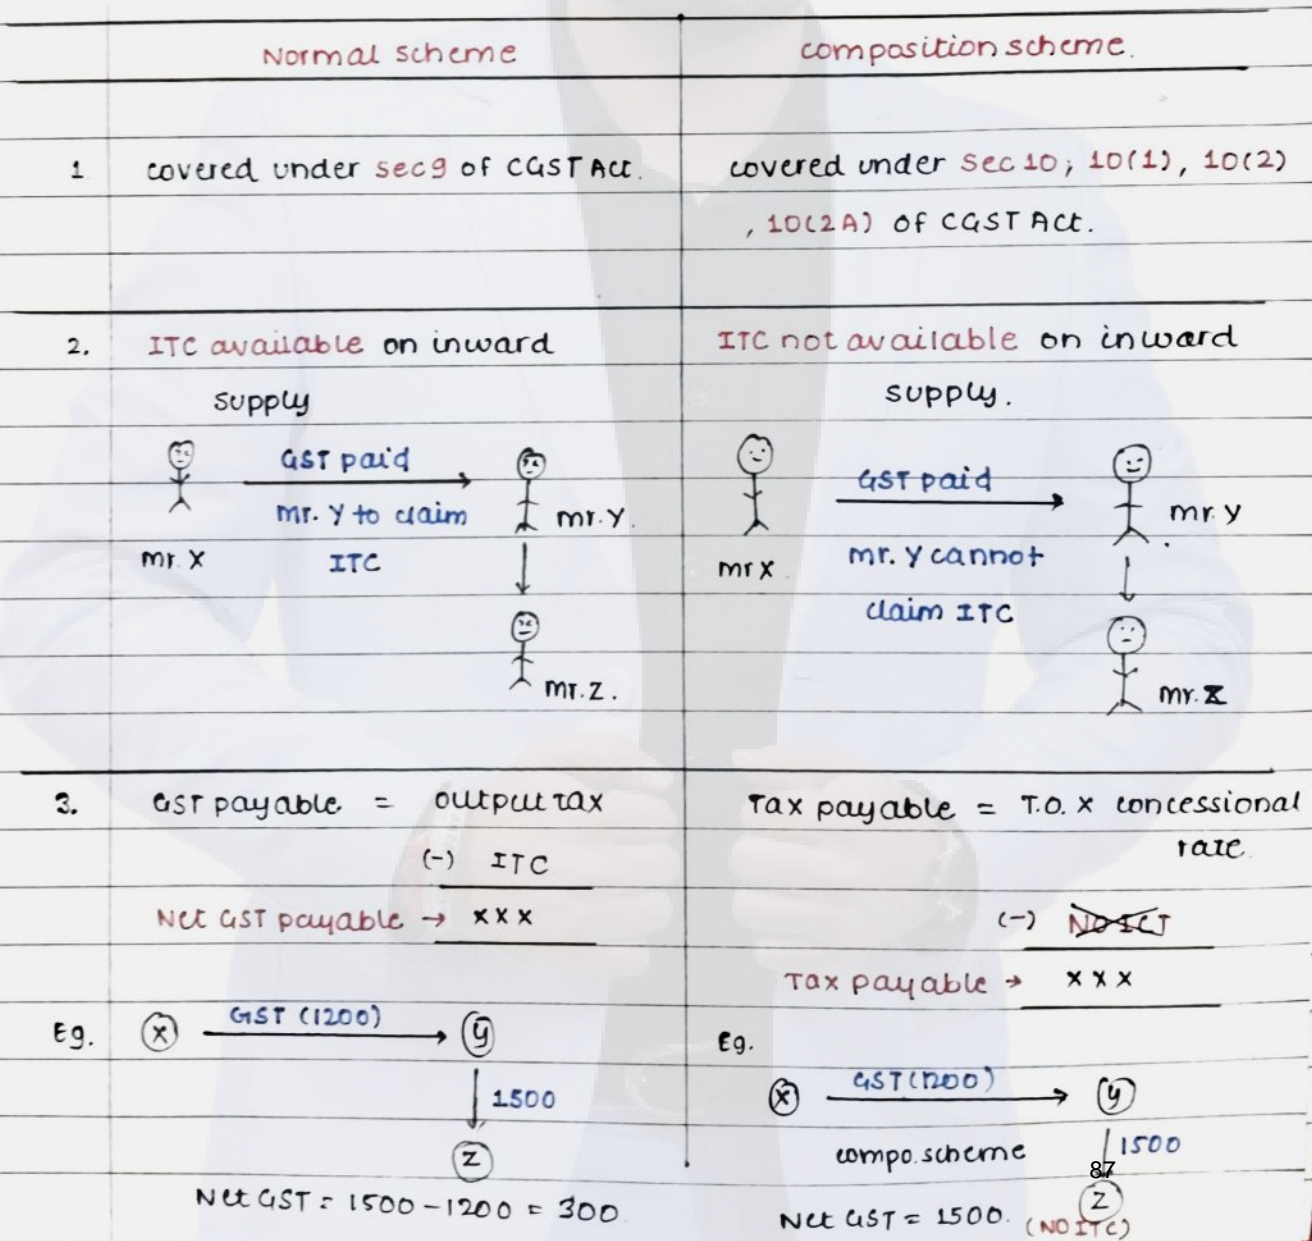 Normal scheme
1 covered under sec 9 of CGST Act.
2. ITC available on inward
supply
GST paid
mr. Y to claim
ITC
mr. X
mr. Y.
mr. Z.
3. GST payable = output tax
(-) ITC
Net GST payable → xxx
Eg. X GST (1200) y
1500
Z
Net GST = 1500 - 1200 = 300
composition scheme.
covered under Sec 10; 10(1), 10(2)
, 10(2A) of CGST Act.
ITC not available on inward
supply.
GST paid
mr. Y cannot
claim ITC
mr X
mr. y
mr. Z
Tax payable = T.O. x concessional
rate
(-)
Tax payable → xxx
Eg.
X GST (1200) y
compo. scheme 1500
87
Z
Net GST = 1500. (NO ITC)